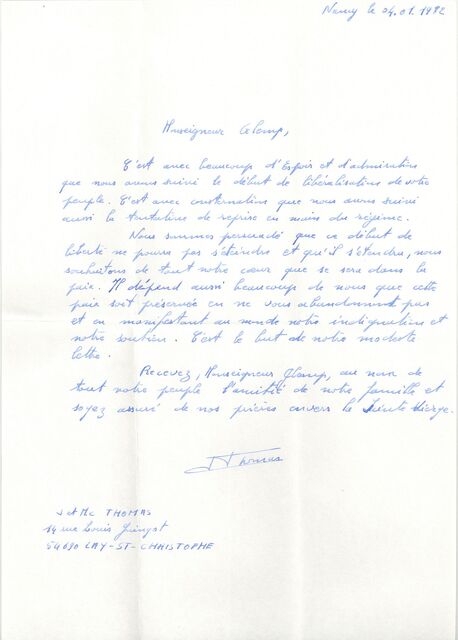 Nancy le 24.01.1982
Monseigneur Glemp,
C'est avec beaucoup d'Espoir et d'admiration
que nous avons suivi le début de libéralisation de votre
peuple. C'est avec consternation que nous avons suivi
aussi la tentative de reprise en main du régime.
Nous sommes persuadé que ce début de
liberté ne pourra pas s'éteindre et qu'il s'étendra, nous
souhaitons de tout notre cœur que se sera dans la
paix. Il dépend aussi beaucoup de nous que cette
paix soit préservée en ne vous abandonnant pas
et en manifestant au monde notre indignation et
notre soutien. C'est le but de notre modeste
lettre.
Recevez, Monseigneur Glemp, au nom de
tout notre peuple l'amitié de notre famille et
soyez assuré de nos prières envers la Sainte Vierge.
JThomas
J et Me THOMAS
14 rue Louis
54690 LAY-ST-CHRISTOPHE